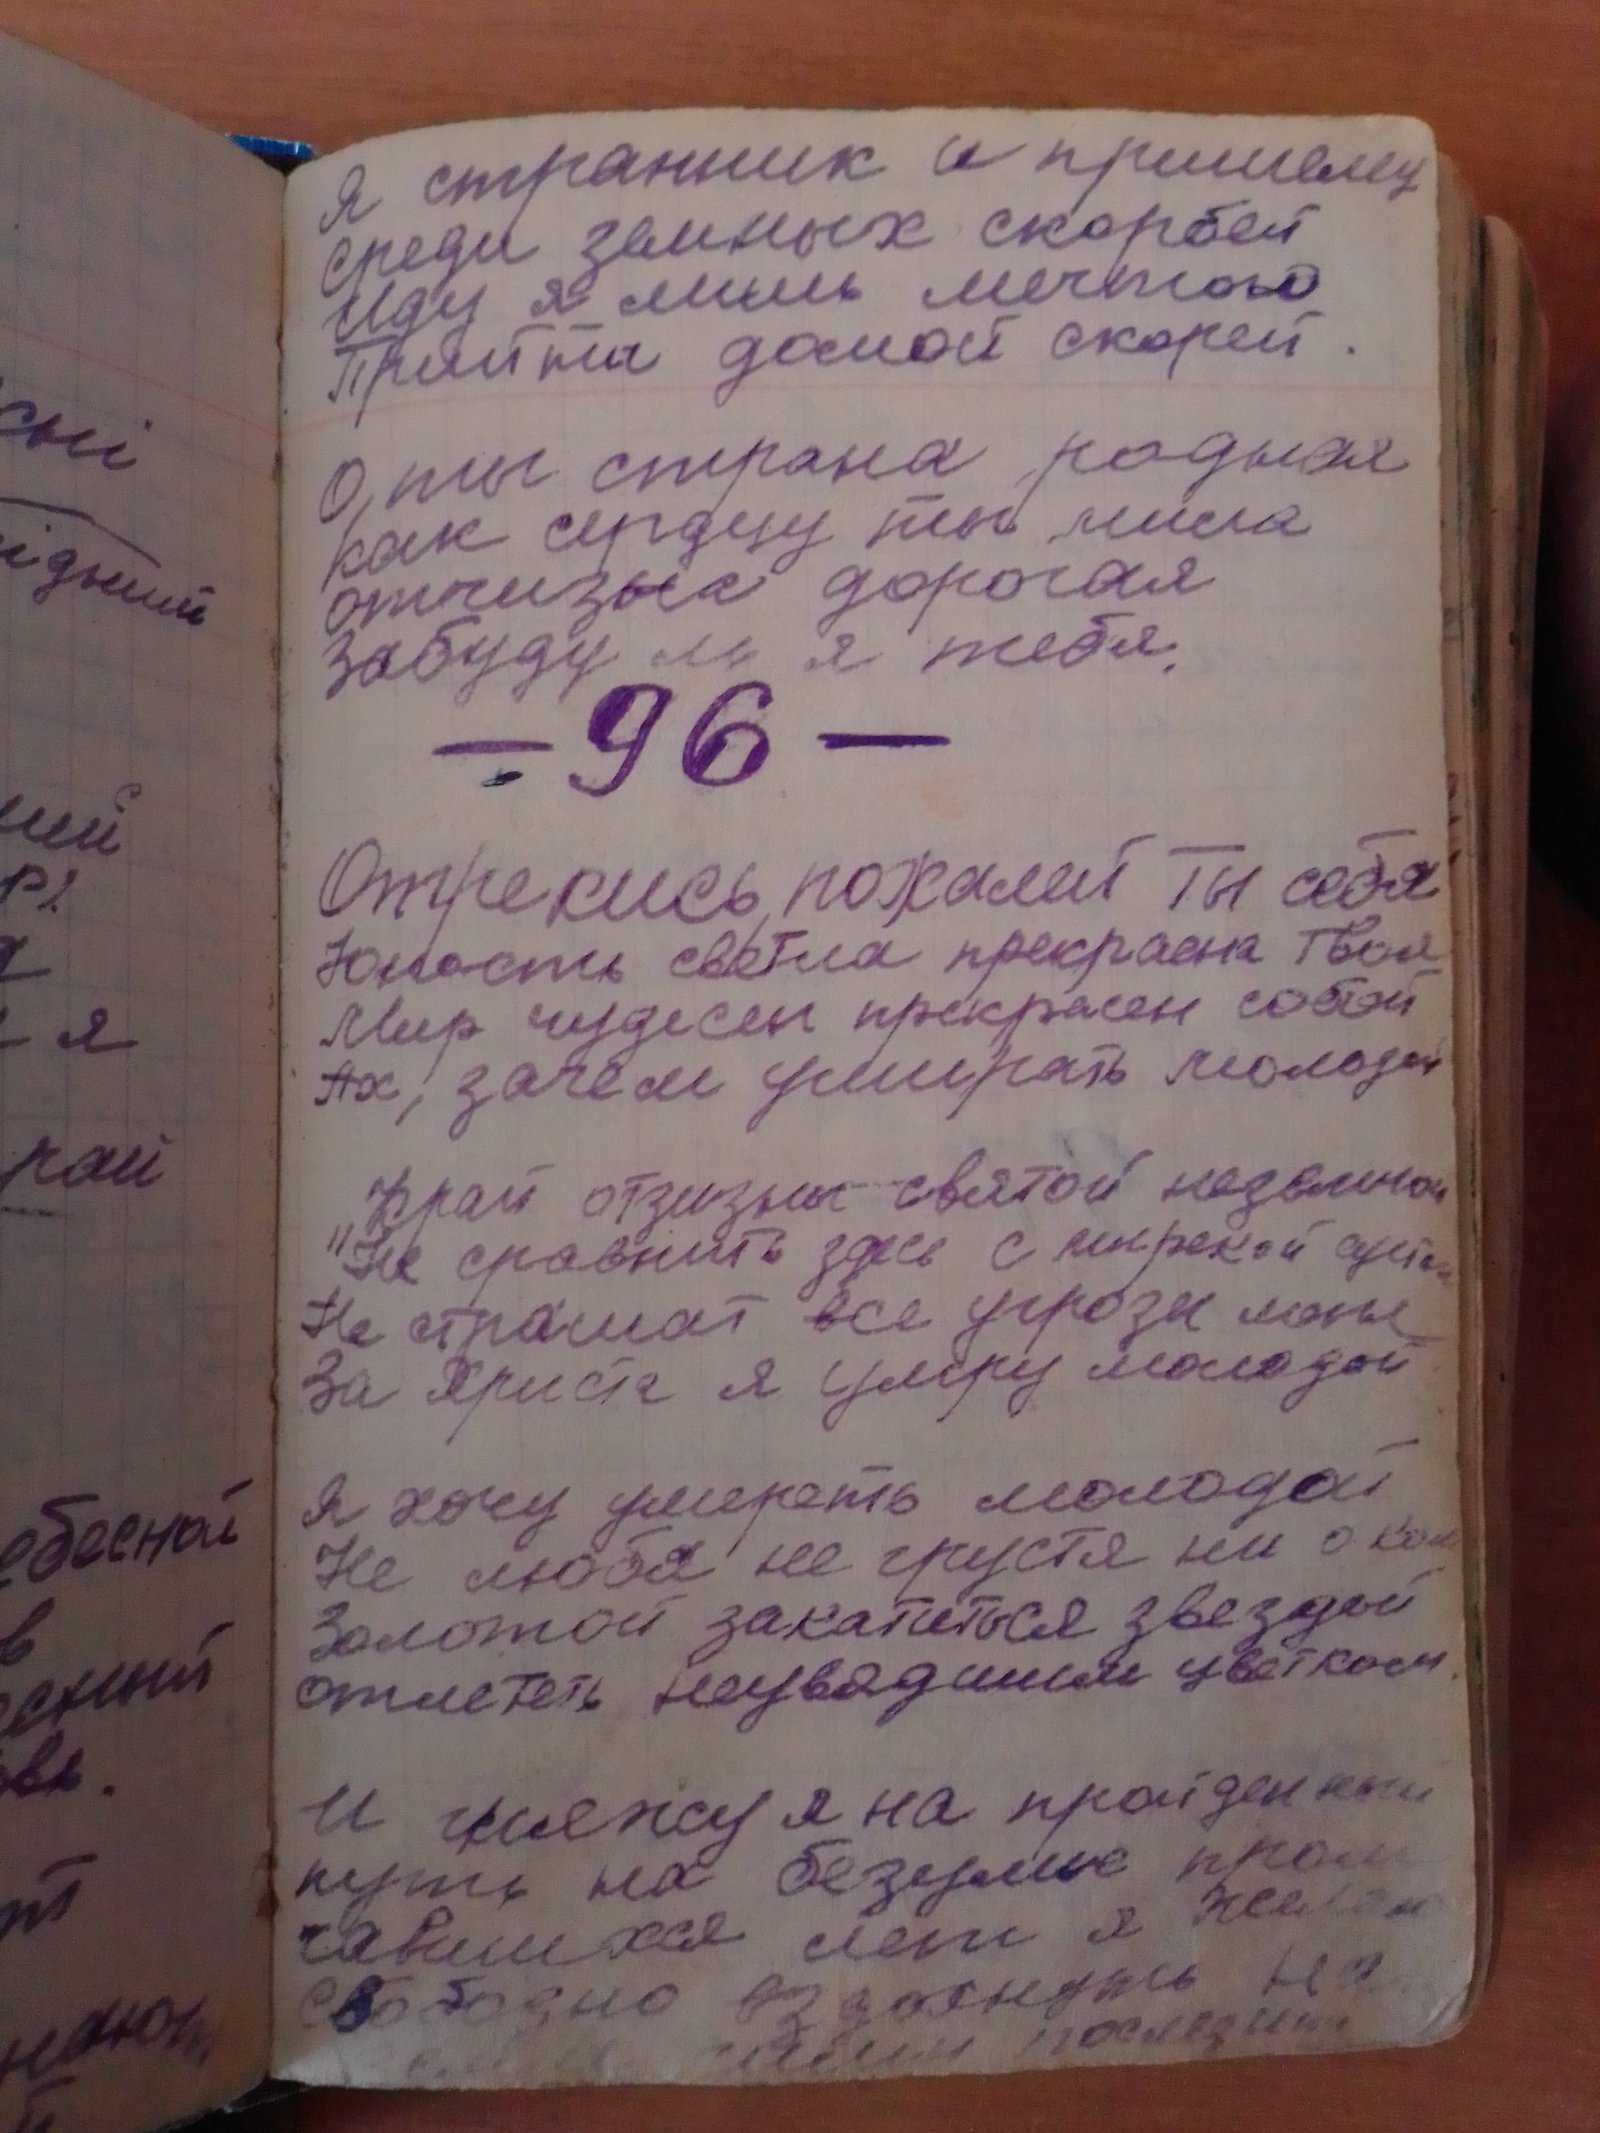 Я странник и пришлец
среди земных скорбей
Иду я лишь мечтою
Прийти домой скорей.
О, ты страна родная
как сердцу ты мила
отчизна дорогая
Забуду ль я тебя.
- 96 -
Отрекись, пожалей ты себя
Юность светла прекрасна твоя
Мир чудесен прекрасен собой
Ах, зачем умирать молодой
"Край отзизны святой неземной
"Не сравнить здесь с мирской
Не страшат все угрози меня
За Христа я умру молодой
Я хочу умереть молодой
Не любя не грустя ни о ком
Золотой закатиться звездой
отлететь неувядшим цветком.
И гляжу я на пройденный
путь на безумие пром
чавшихся лет я желал
свободно вздохнуть на
последний
сні
ідьний
ний
рі
я
рай
ебесной
в
сний
овь.